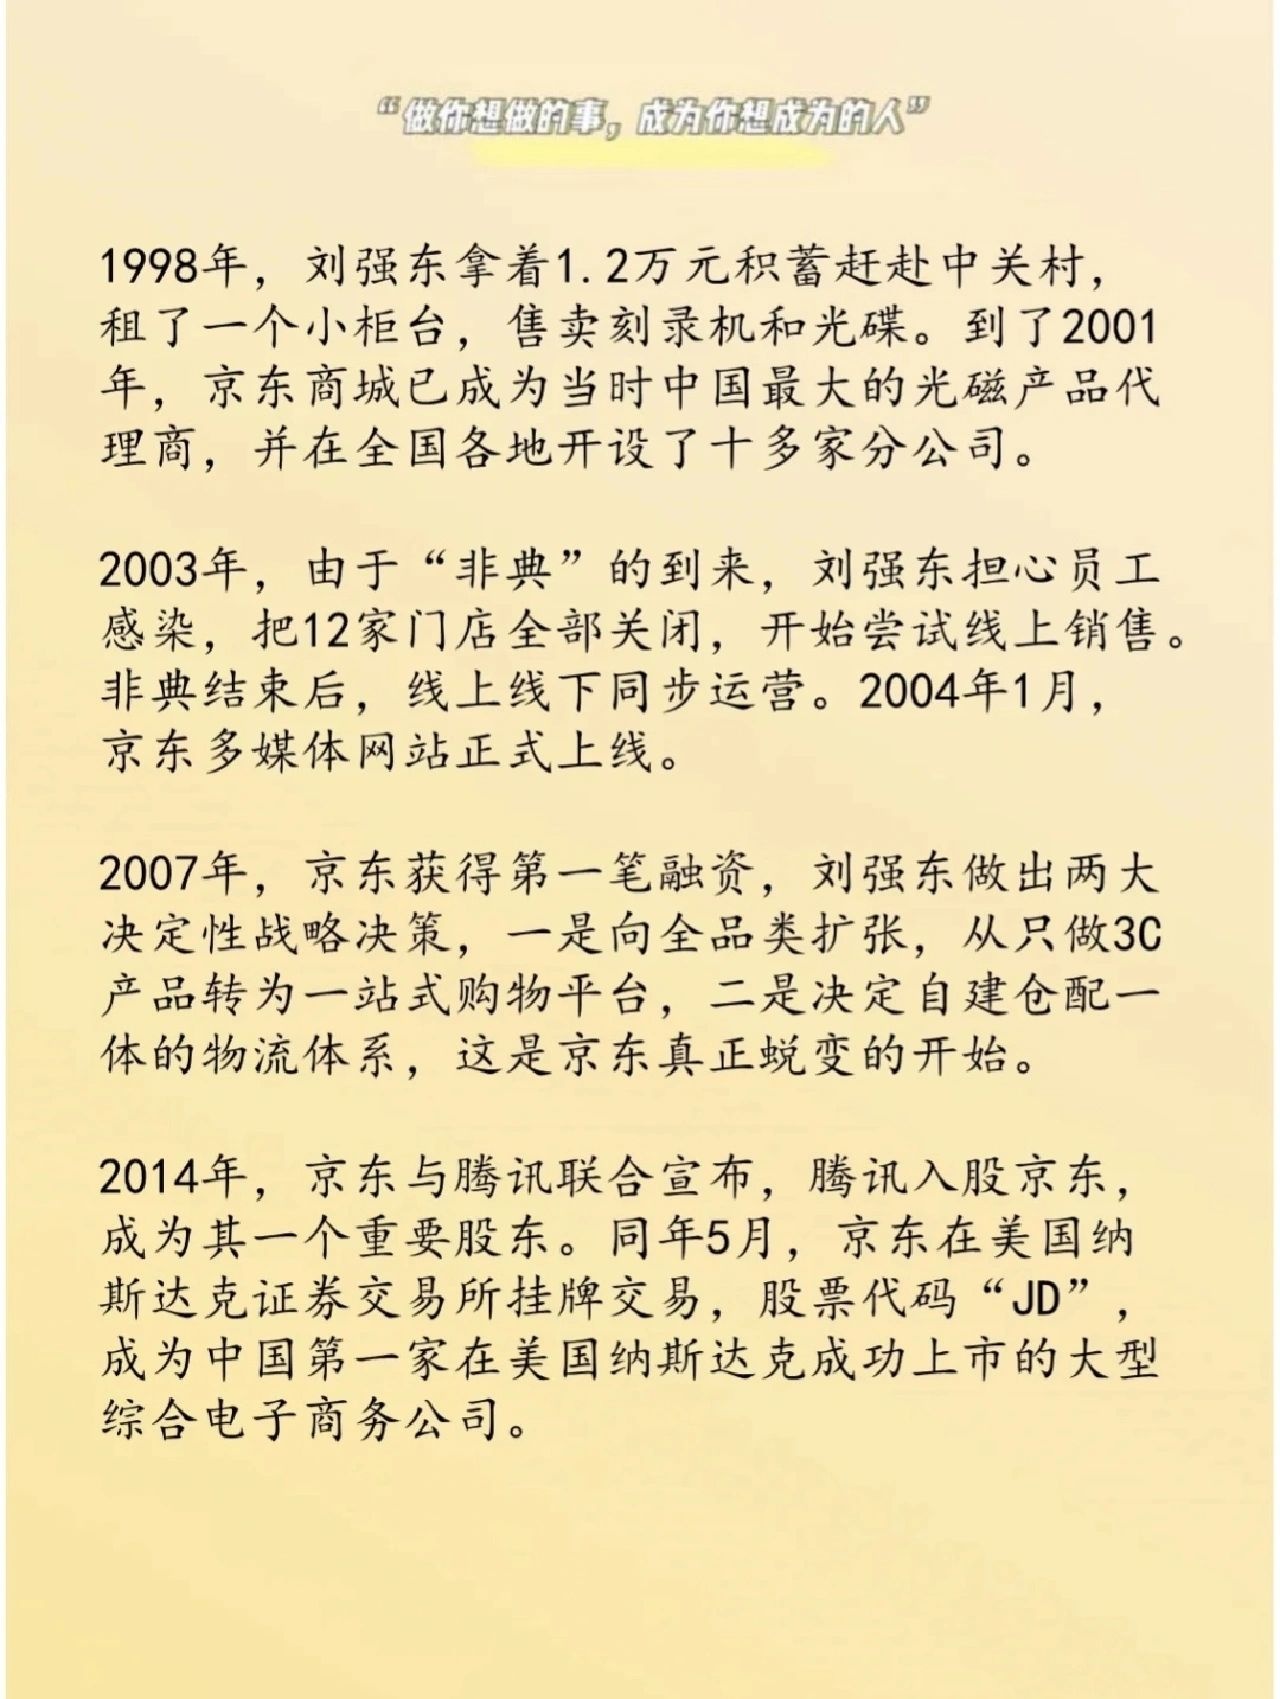 “做你想做的事，成为你想成为的人”
1998年，刘强东拿着1.2万元积蓄赶赴中关村，
租了一个小柜台，售卖刻录机和光碟。到了2001
年，京东商城已成为当时中国最大的光磁产品代
理商，并在全国各地开设了十多家分公司。
2003年，由于“非典”的到来，刘强东担心员工
感染，把12家门店全部关闭，开始尝试线上销售。
非典结束后，线上线下同步运营。2004年1月，
京东多媒体网站正式上线。
2007年，京东获得第一笔融资，刘强东做出两大
决定性战略决策，一是向全品类扩张，从只做3C
产品转为一站式购物平台，二是决定自建仓配一
体的物流体系，这是京东真正蜕变的开始。
2014年，京东与腾讯联合宣布，腾讯入股京东，
成为其一个重要股东。同年5月，京东在美国纳
斯达克证券交易所挂牌交易，股票代码“JD”，
成为中国第一家在美国纳斯达克成功上市的大型
综合电子商务公司。